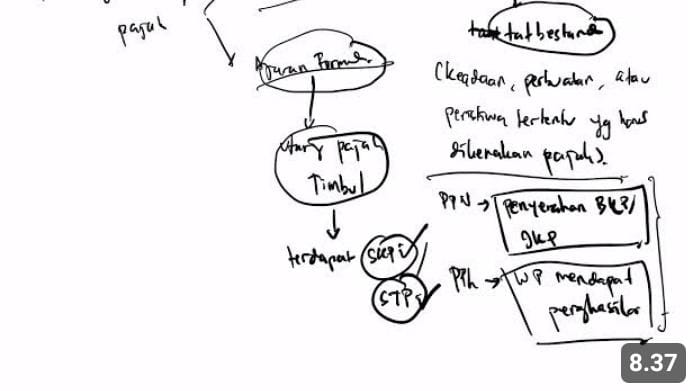 pajak
Ajaran Formal.
utang pajak
Timbul
terdapat SKP
STP
tatbestand
(keadaan, perbuatan, atau
peristiwa tertentu yg harus
dikenakan pajak).
PPN → penyerahan BKP/
JKP
PPh → WP mendapat
penghasilan
8.37